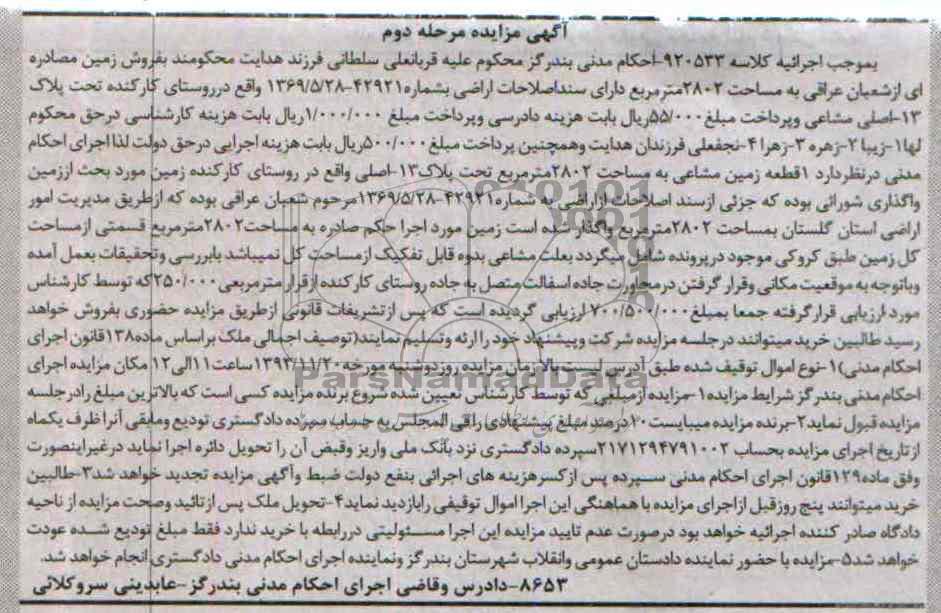 آگهی مزایده مرحله دوم
بموجب اجرائیه کلاسه ۹۲۰۵۳۳-احکام مدنی بندرگز محکوم علیه قربانعلی سلطانی فرزند هدایت محکومند بفروش زمین مصادره
ای ازشعبان عراقی به مساحت ۲۸۰۲مترمربع دارای سنداصلاحات اراضی بشماره۴۲۹۲۱-۱۳۶۹/۵/۲۸ واقع درروستای کارکنده تحت پلاک
۱۳-اصلی مشاعی وپرداخت مبلغ۵۵/۰۰۰ریال بابت هزینه دادرسی وپرداخت مبلغ ۱/۰۰۰/۰۰۰ریال بابت هزینه کارشناسی درحق محکوم
لها۱-زیبا ۲-زهره ۳-زهرا ۴-نجفعلی فرزندان هدایت وهمچنین پرداخت مبلغ۵۰۰/۰۰۰ریال بابت هزینه اجرایی درحق دولت لذا اجرای احکام
مدنی درنظردارد ۱قطعه زمین مشاعی به مساحت ۲۸۰۲مترمربع تحت پلاک۱۳-اصلی واقع در روستای کارکنده زمین مورد بحث اززمین
واگذاری شورائی بوده که جزئی ازسند اصلاحات ازاراضی به شماره۴۲۹۲۱-۱۳۶۹/۵/۲۸مرحوم شعبان عراقی بوده که ازطریق مدیریت امور
اراضی استان گلستان بمساحت ۲۸۰۲مترمربع واگذار شده است زمین مورد اجرا حکم صادره به مساحت۲۸۰۲مترمربع قسمتی ازمساحت
کل زمین طبق کروکی موجود درپرونده شامل میگردد بعلت مشاعی بدوه قابل تفکیک ازمساحت کل نمیباشد بابررسی وتحقیقات بعمل آمده
وباتوجه به موقعیت مکانی وقرار گرفتن درمجاورت جاده اسفالت متصل به جاده روستای کارکنده ازقرار مترمربعی۲۵۰/۰۰۰که توسط کارشناس
مورد ارزیابی قرار گرفته جمعا بمبلغ۷۰۰/۵۰۰/۰۰۰ارزیابی گردیده است که پس ازتشریفات قانونی ازطریق مزایده حضوری بفروش خواهد
رسید طالبین خرید میتوانند درجلسه مزایده شرکت وپیشنهاد خود را ارئه وتسلیم نمایند(توصیف اجمالی ملک براساس ماده۱۳۸قانون اجرای
احکام مدنی)۱-نوع اموال توقیف شده طبق آدرس لیست بالا زمان مزایده روزدوشنبه مورخه۱۳۹۳/۱۱/۲۰ساعت۱۱الی۱۲ مکان مزایده اجرای
احکام مدنی بندرگز شرایط مزایده۱-مزایده ازمبلغی که توسط کارشناس تعیین شده شروع برنده مزایده کسی است که بالاترین مبلغ رادرجلسه
مزایده قبول نماید۲-برنده مزایده میبایست۱۰درصد مبلغ پیشنهادی رافی المجلس به حساب سپرده دادگستری تودیع ومابقی آنراظرف یکماه
ازتاریخ اجرای مزایده بحساب ۲۱۷۱۲۹۴۷۹۱۰۰۲سپرده دادگستری نزد بانک ملی واریز وقبض آن را تحویل دائره اجرا نماید درغیراینصورت
وفق ماده۱۲۹قانون اجرای احکام مدنی سپرده پس ازکسرهزینه های اجرائی بنفع دولت ضبط وآگهی مزایده تجدید خواهد شد۳-طالبین
خرید میتوانند پنج روزقبل ازاجرای مزایده با هماهنگی این اجرا اموال توقیفی رابازدید نماید۴-تحویل ملک پس ازتائید وصحت مزایده از ناحیه
دادگاه صادر کننده اجرائیه خواهد بود درصورت عدم تایید مزایده این اجرا مسئولیتی دررابطه با خرید ندارد فقط مبلغ تودیع شده عودت
خواهد شد۵-مزایده با حضور نماینده دادستان عمومی وانقلاب شهرستان بندرگز ونماینده اجرای احکام مدنی دادگستری انجام خواهد شد.
۸۶۵۳-دادرس وقاضی اجرای احکام مدنی بندرگز-عابدینی سروکلائی
ParsNamadData